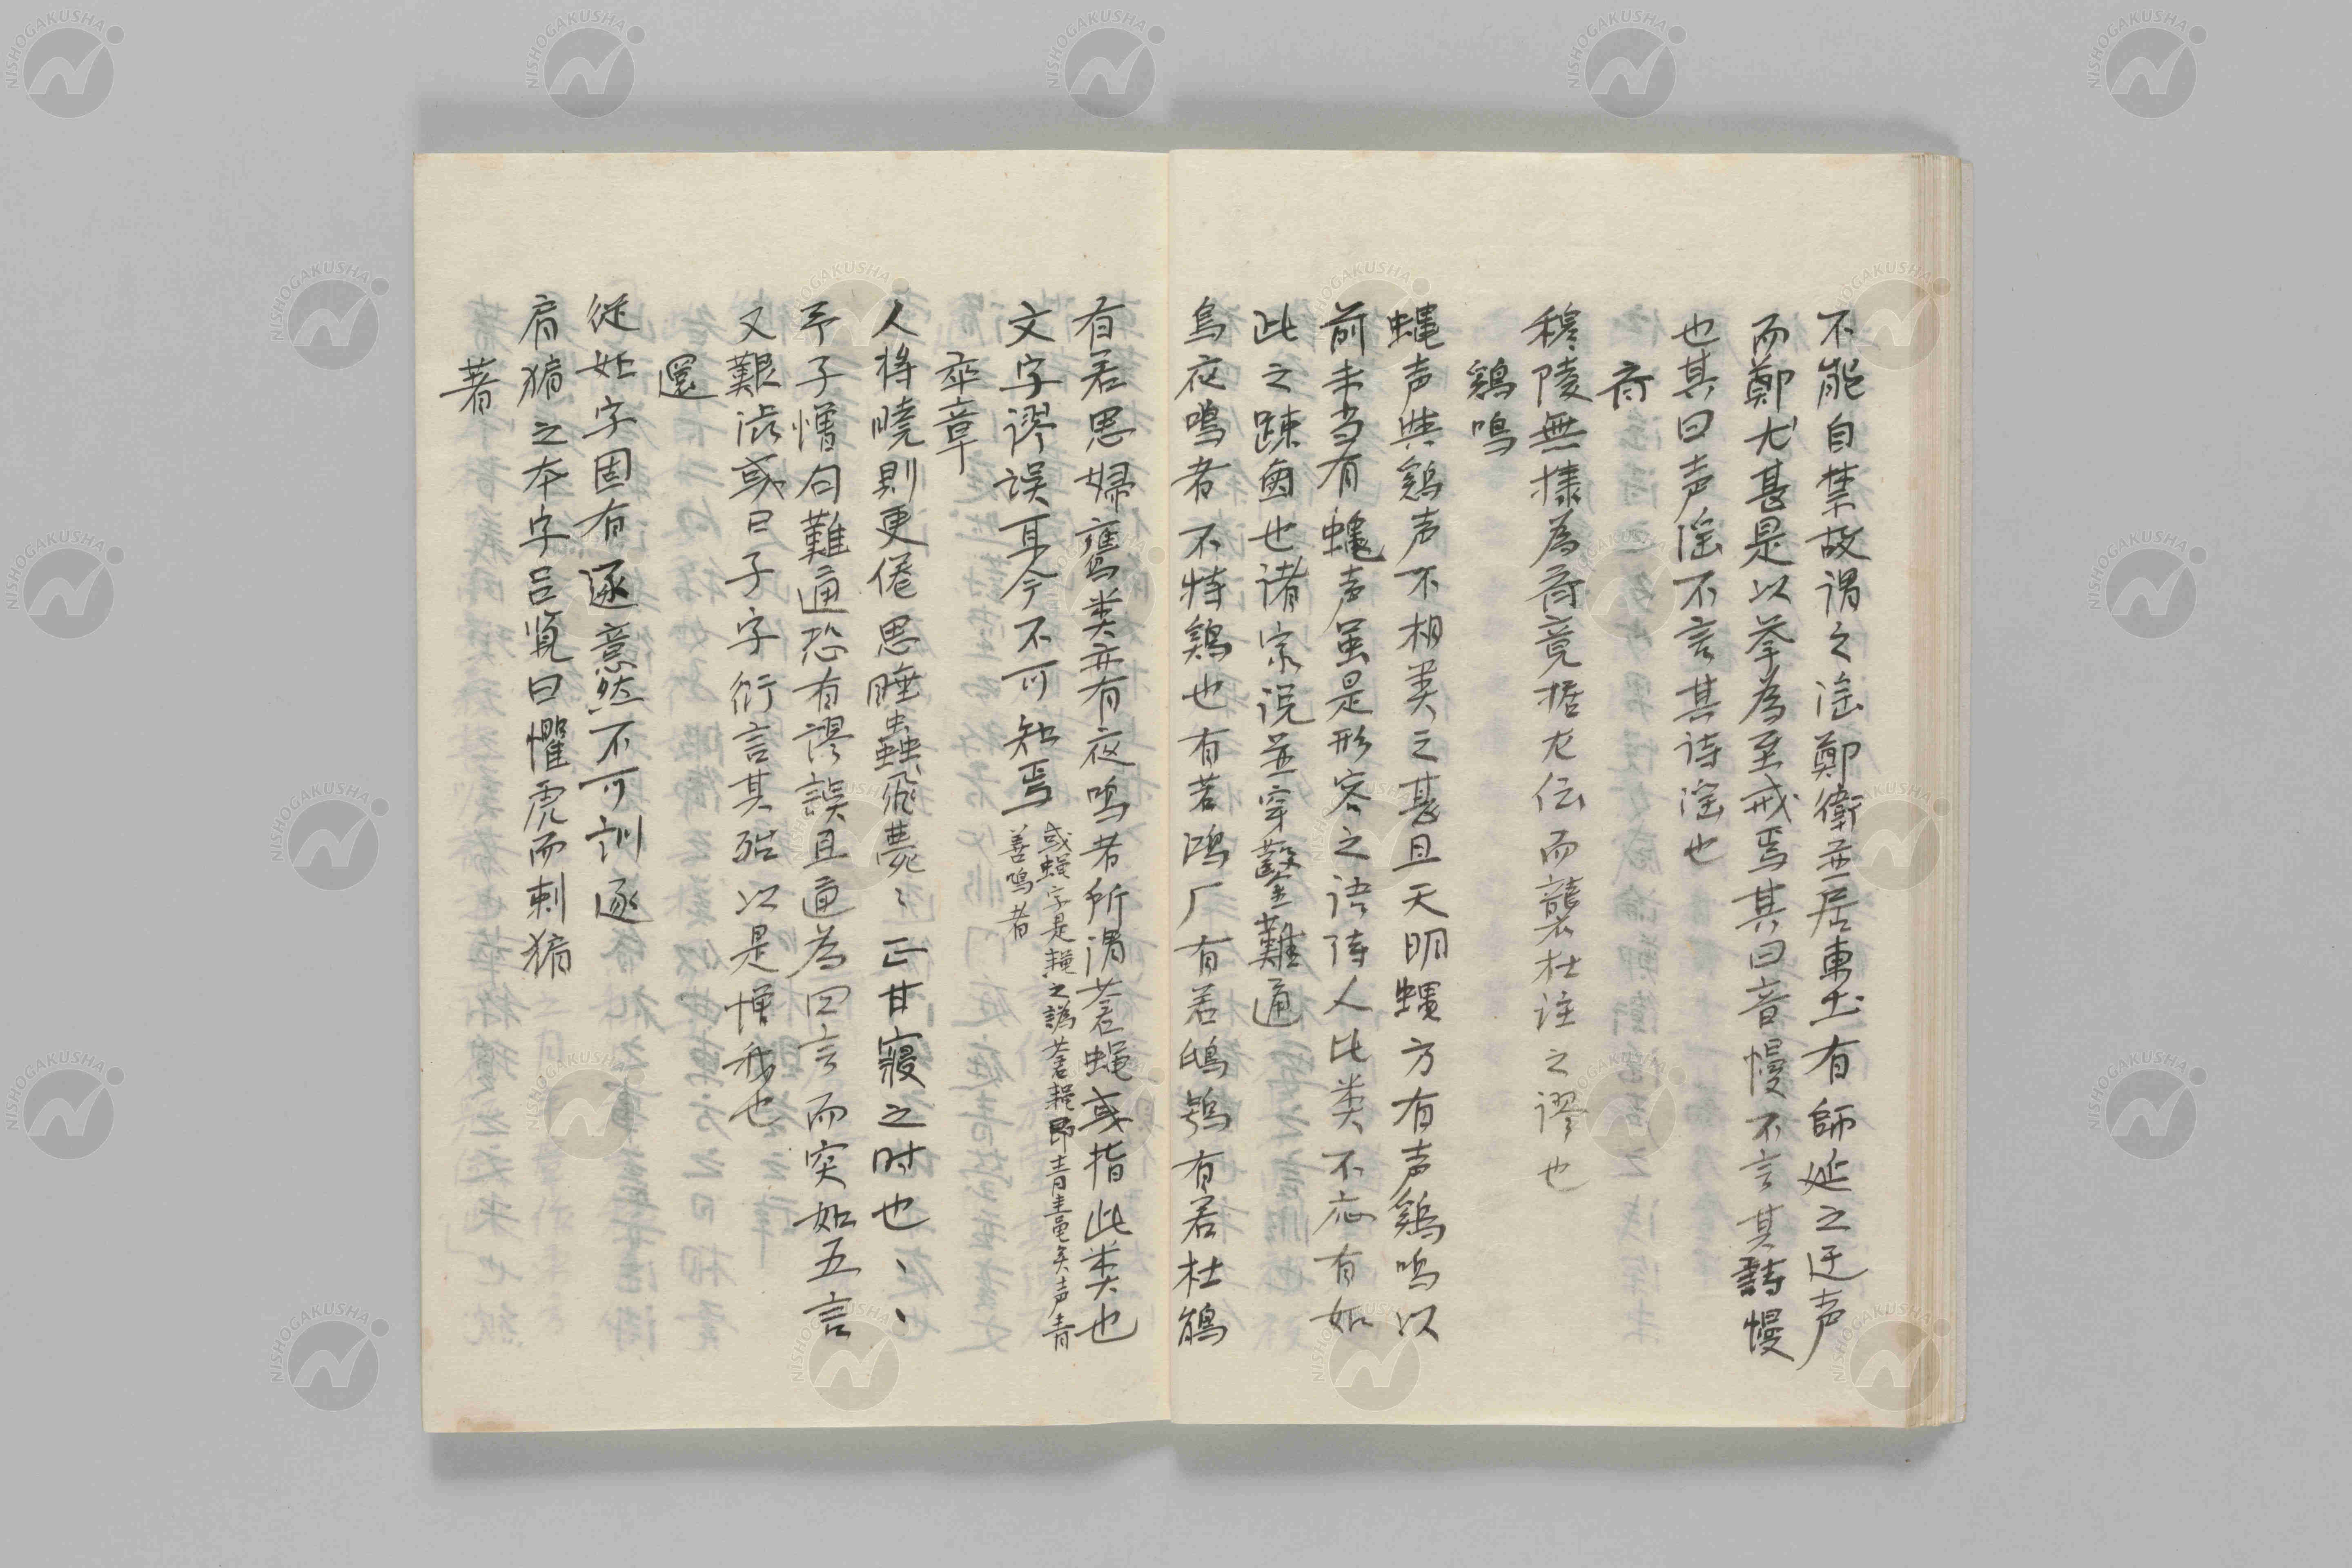 不能自禁故謂之淫鄭衛並居東土有師延之迂声
而鄭尤甚是以挙為至戒焉其曰音慢不言其詩慢
也其曰声淫不言其诗淫也
斉
穆陵無棣為斉竟据左伝而襲杜注之謬也
鶏鳴
蝿声与鶏声不相类之甚且天明蝿方有声鶏鳴以
前未当有蝿声虽是形容之语诗人比类不応有如
此之踈鹵也诸家说並穿鑿難通
鳥夜鳴者不特鶏也有若鴻厂有若鴟鴞有若杜鵑
有若思婦鸎类亦有夜鳴者所谓蒼蝿或指此类也
文字謬误耳今不可知焉
或蝿字是䵷之譌蒼䵷即青䵷矣声青
善鳴者
卒章
人将曉則更倦思睡虫蟲飛薨〻正甘寝之时也、、
予子憎句難通恐有謬誤且通為四言而突如五言
又艱渋或曰子字衍言其强以是憎我也
還
従如字固有逐意然不可训逐
肩豜之本字吕览曰懼虎而刺猏
著
NISHOGAKUSHA